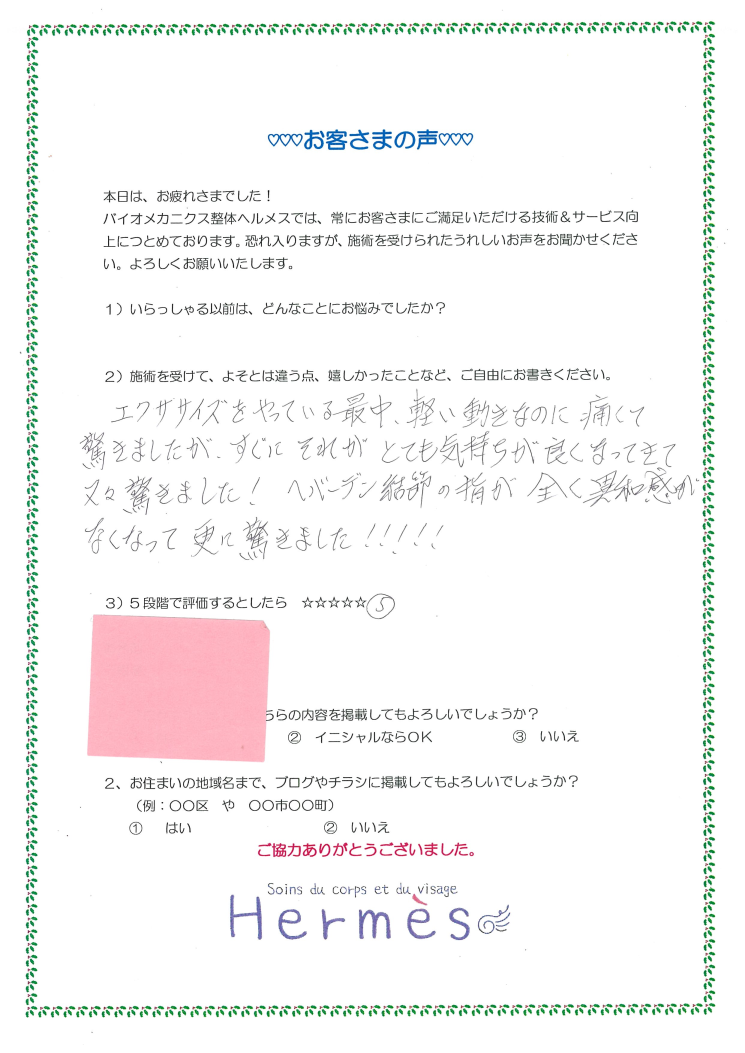 ♡♡♡お客さまの声♡♡♡
本日は、お疲れさまでした！
バイオメカニクス整体ヘルメスでは、常にお客さまにご満足いただける技術＆サービス向
上につとめております。恐れ入りますが、施術を受けられたうれしいお声をお聞かせくださ
い。よろしくお願いいたします。
１）いらっしゃる以前は、どんなことにお悩みでしたか？
２）施術を受けて、よそとは違う点、嬉しかったことなど、ご自由にお書きください。
エクササイズをやっている最中、軽い動きなのに痛くて
驚きましたが、すぐにそれがとても気持ちが良くなってきて
又々驚きました！ヘバーデン結節の指が全く異和感が
なくなって更に驚きました！！！！！
３）５段階で評価するとしたら　☆☆☆☆☆ 5
ちらの内容を掲載してもよろしいでしょうか？
②　イニシャルならOK　③　いいえ
２、お住まいの地域名まで、ブログやチラシに掲載してもよろしいでしょうか？
（例：〇〇区　や　〇〇市〇〇町）
①　はい　②　いいえ
ご協力ありがとうございました。
Soins du corps et du visage
Hermès